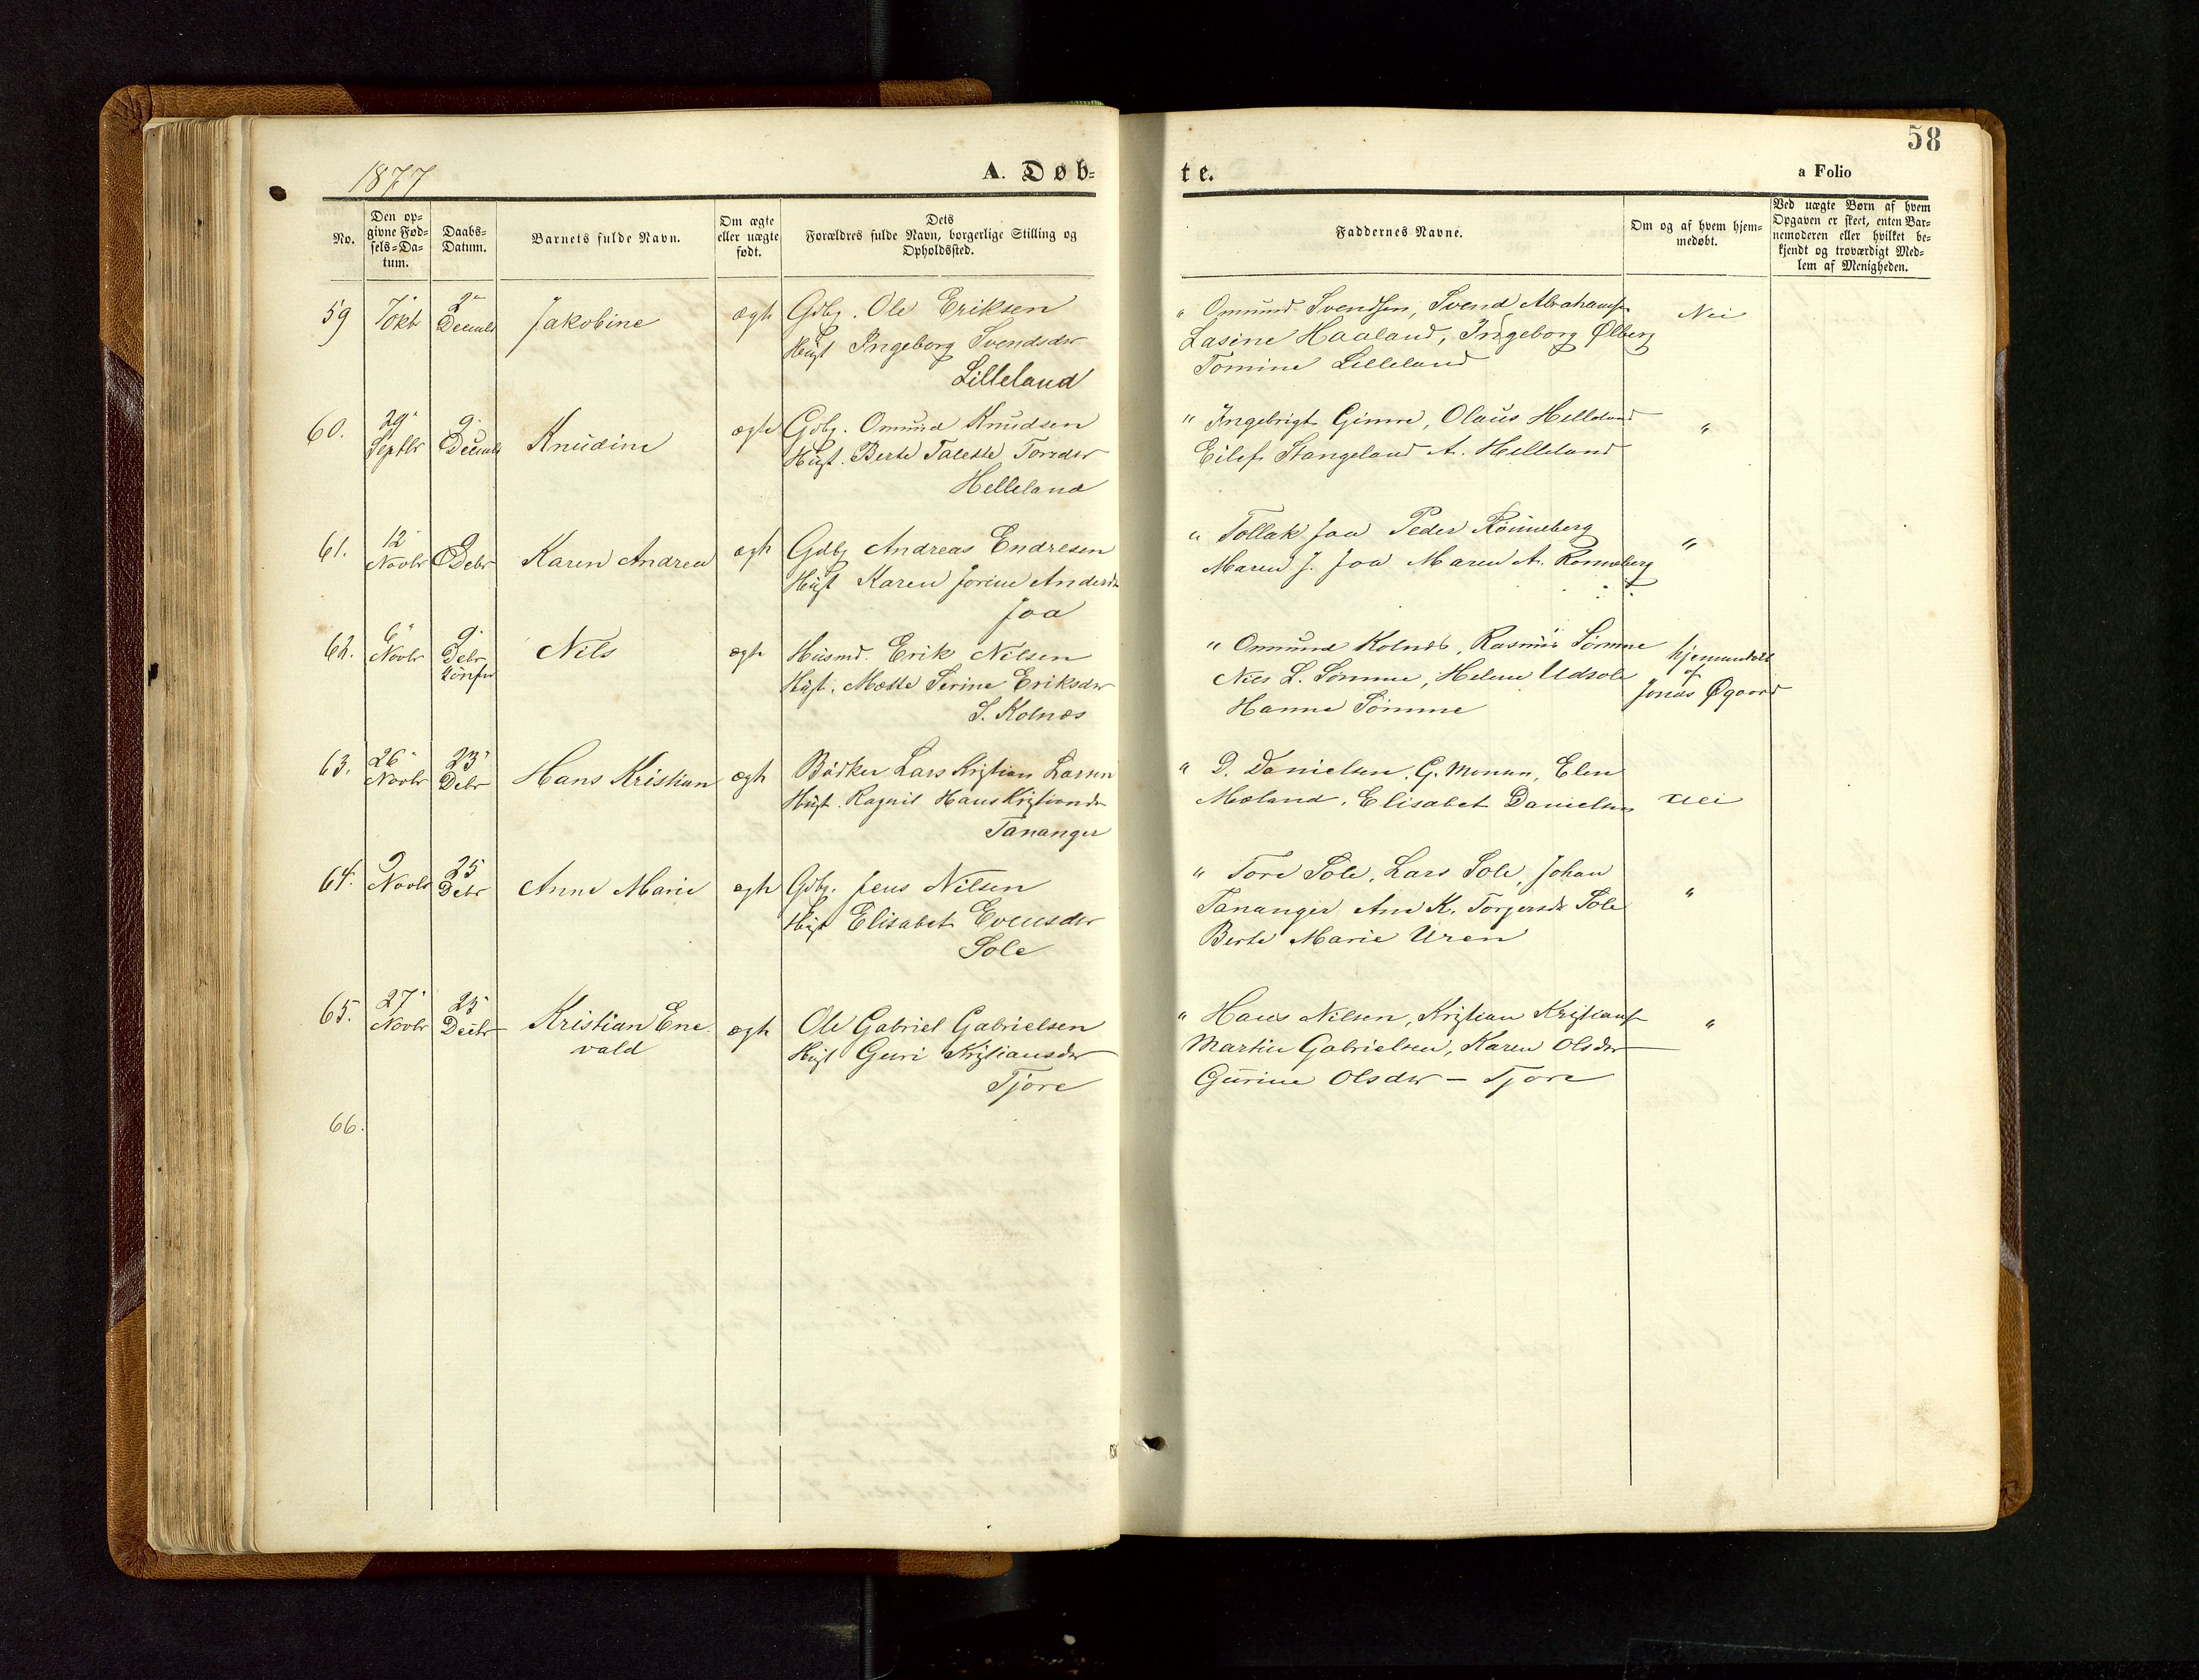 58
1877
A. Døb=
te.
a Folio
No.
Den op=
givne Fød=
sels=Da=
tum.
Daabs=
Datum.
Barnets fulde Navn.
Om ægte
eller uægte
født.
Dets
Forældres fulde Navn, borgerlige Stilling og
Opholdssted.
Faddernes Navne.
Om og af hvem hjem=
medøbt.
Ved uægte Børn af hvem
Opgaven er skeet, enten Bar=
nemoderen eller hvilket be=
kjendt og troværdigt Med=
lem af Menigheden.
59 7 Oktr 2 Decembr Jakobine ægte Gdbg. Ole Eriksen
Hust Ingeborg Svendsdr
Lilleland
" Omund Svendsen, Svend Abrahams
Lasine Haaland, Ingeborg Ølberg
Tomine Lilleland
Nei
60. 29 Septbr 9 Decembr Knudine ægte Gdbg. Omund Knudsen
Hust. Berte Talette Torsdr
Helleland
" Ingebrigt Gimre, Olaus Helleland
Eilef Stangeland A. Helleland
"
61. 12 Novbr 9 Debr Karen Andrea ægte Gdbg Andreas Endresen
Hust Karen Jorine Andersdr
Joa
" Tollak Joa Peder Rønneberg
Maren J. Joa Maren A. Rønneberg
"
62. 6 Novbr 9 Debr Nils ægte Husmd. Erik Nilsen
Hust. Mætte Serine Eriksdr
S. Kolnes
" Omund Kolnes, Rasmus Sømme
Niels L. Sømme, Helene Udsole
Hanne Sømme
hjemmedøbt
af
Jonas Øgaard
63. 26 Novbr 23 Debr Hans Kristian ægte Bødker Lars Kristian Larsen
Hust. Ragnil Hans Kristiansdr
Tananger
" D. Danielsen, G. Monsen, Elen
Mæland, Elisabet Danielsen
Nei
64. 9 Novbr 25 Debr Anne Marie ægte Gdbg. Jens Nilsen
Hust Elisabet Evensdr
Sole
" Tore Sole, Lars Sole, Johan
Tananger Ane K. Torgersdr Sole
Berte Marie Uren
"
65. 27 Novbr 25 Decbr Kristian Ene
vald
ægte Ole Gabriel Gabrielsen
Hust Guri Kristiansdr
Tjore
" Hans Nilsen, Kristian Kristians
Martin Gabrielsen, Karen Olsdr
Gurine Olsdr — Tjore
"
66.